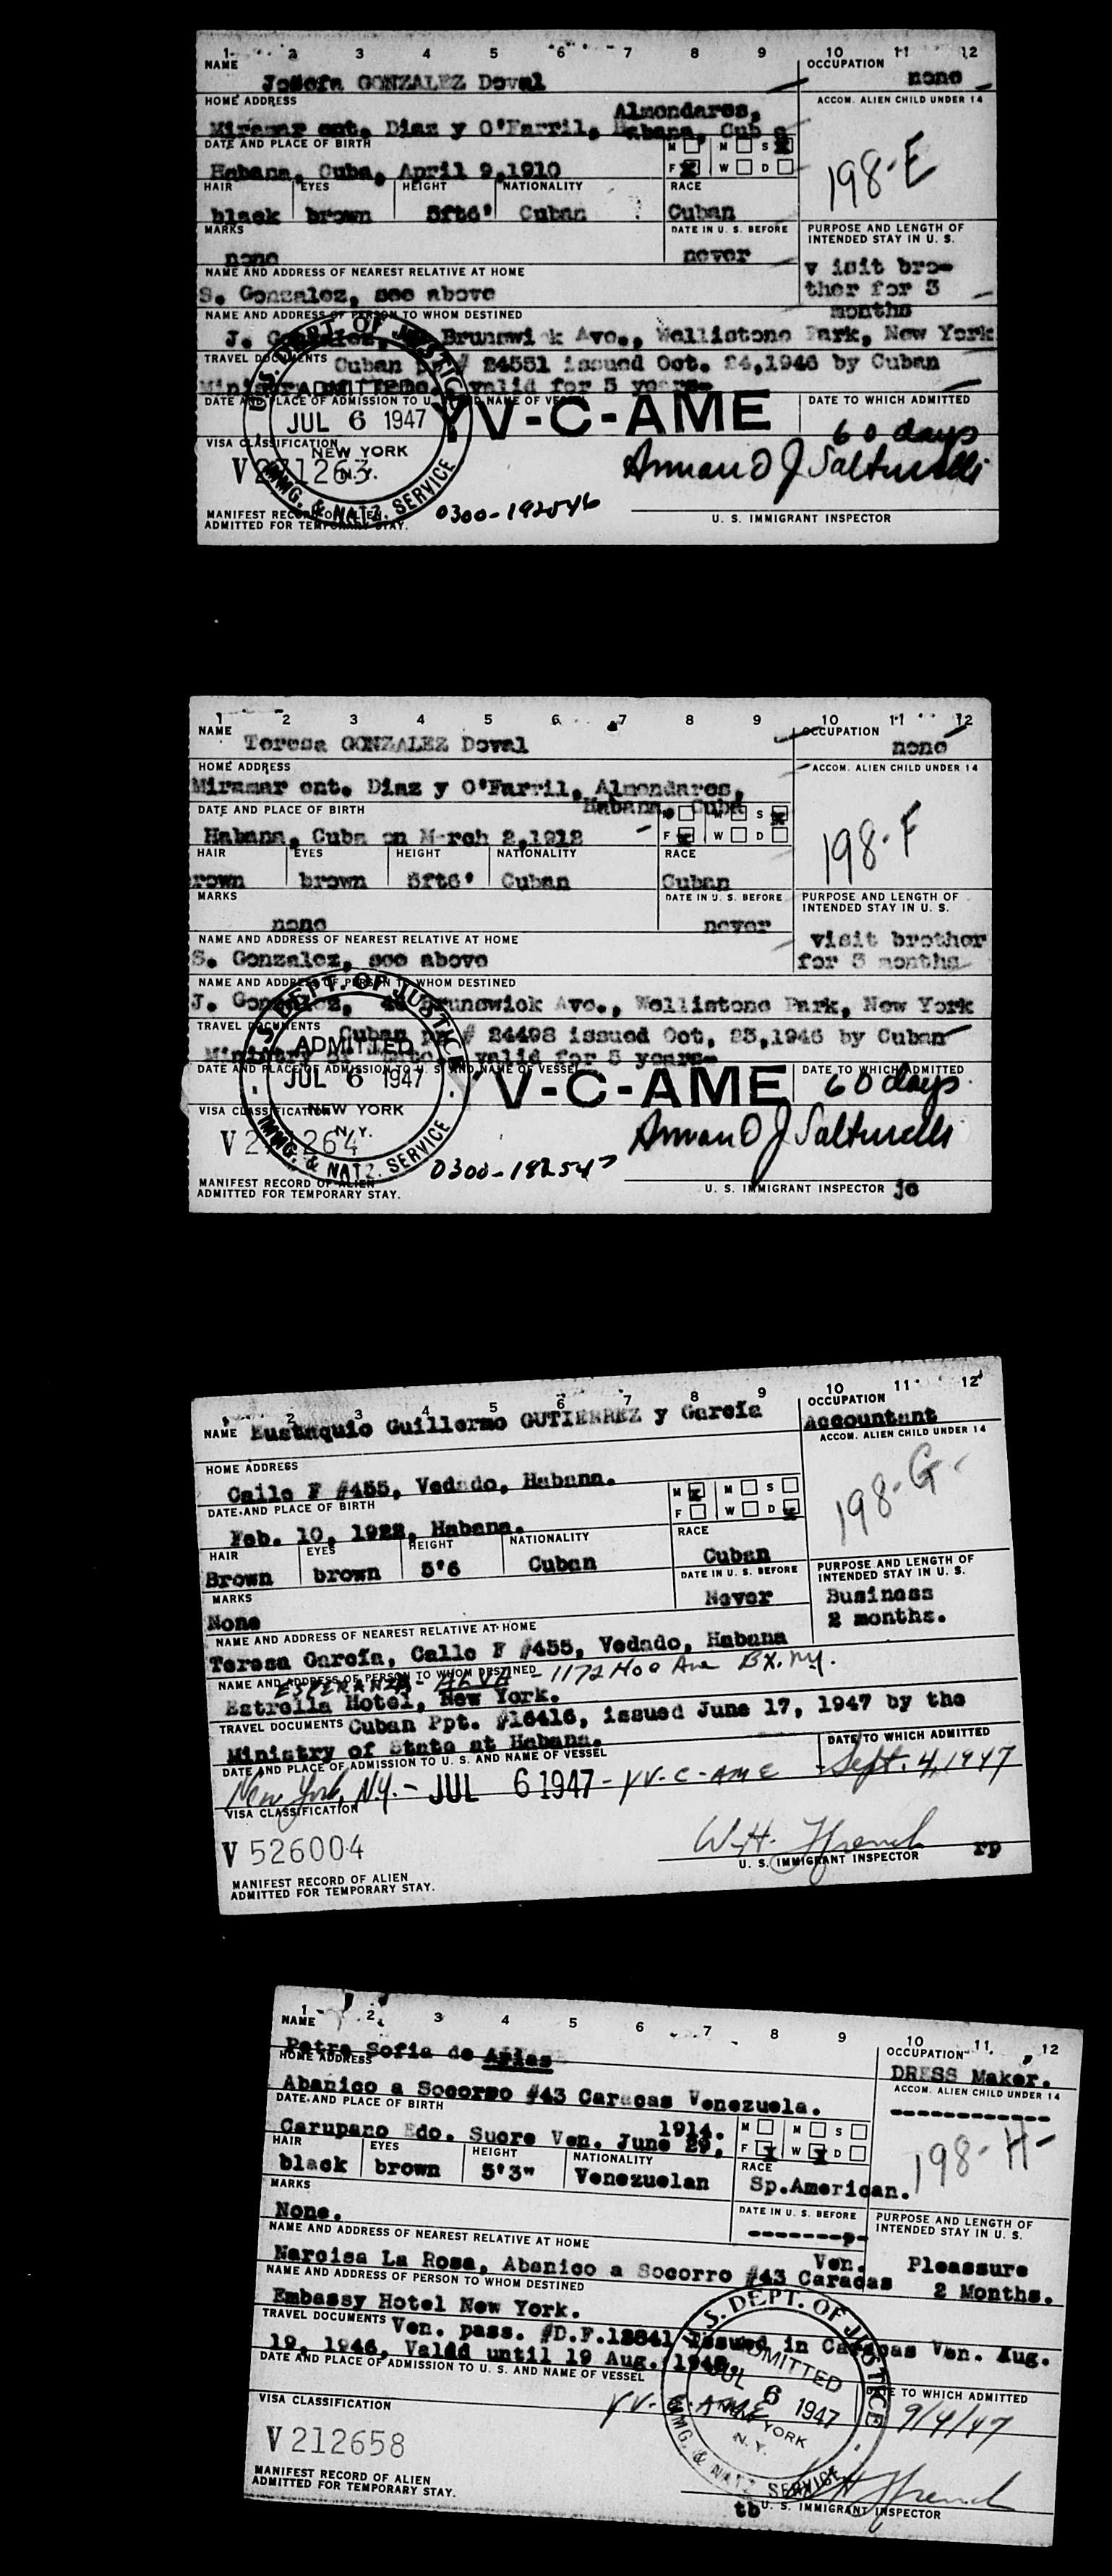 1 2 3 4 5 6 7 8 9 10 11 12
NAME
Josefa GONZALEZ Doval
OCCUPATION
none
HOME ADDRESS
Almendares,
Miramar ent. Diaz y O'Farril, Habana, Cuba
ACCOM. ALIEN CHILD UNDER 14
198-E
DATE AND PLACE OF BIRTH
M M S
Habana, Cuba, April 9,1910
F X W D
HAIR EYES HEIGHT NATIONALITY RACE
black brown 5ft6' Cuban Cuban
MARKS
DATE IN U. S. BEFORE
PURPOSE AND LENGTH OF
INTENDED STAY IN U. S.
none never
v isit bro-
ther for 3
months
NAME AND ADDRESS OF NEAREST RELATIVE AT HOME
S. Gonzalez, see above
NAME AND ADDRESS OF PERSON TO WHOM DESTINED
J. Brunswi k Ave., Wellistone Park, New York
TRAVEL DOCUMENTS
Cuban # 24551 issued Oct. 24,1946 by Cuban
valid for 5 years-
DATE AND PLACE OF ADMISSION TO U. S. AND NAME OF VESSEL
DATE TO WHICH ADMITTED
U. S. DEPT. OF JUSTICE
ADMITTED
JUL 6 1947
NEW YORK
N. Y.
IMMG. & NATZ. SERVICE
YV-C-AME
60 days
VISA CLASSIFICATION
V 271263
Armand J Salturelli
0300-192546
MANIFEST RECORD OF ALIEN
ADMITTED FOR TEMPORARY STAY.
U. S. IMMIGRANT INSPECTOR
1 2 3 4 5 6 7 8 9 10 11 12
NAME
Teresa GONZALEZ Doval
OCCUPATION
none
HOME ADDRESS
Miramar ent. Diaz y O'Farril, Almendares,
Habana, Cuba
ACCOM. ALIEN CHILD UNDER 14
198-F
DATE AND PLACE OF BIRTH
M M S X
Habana, Cuba on March 2,1912
F X W D
HAIR EYES HEIGHT NATIONALITY RACE
rown brown 5ft6' Cuban Cuban
MARKS
DATE IN U. S. BEFORE
PURPOSE AND LENGTH OF
INTENDED STAY IN U. S.
none never
visit brother
for 3 months
NAME AND ADDRESS OF NEAREST RELATIVE AT HOME
S. Gonzalez, see above
NAME AND ADDRESS OF PERSON TO WHOM DESTINED
J. Gonzalez, Brunswick Ave., Wellistone Park, New York
TRAVEL DOCUMENTS
Cuban # 24498 issued Oct, 23,1946 by Cuban
Ministry of valid for 5 years-
DATE AND PLACE OF ADMISSION TO U. S. AND NAME OF VESSEL
DATE TO WHICH ADMITTED
U. S. DEPT. OF JUSTICE
ADMITTED
JUL 6 1947
NEW YORK
N. Y.
IMMG. & NATZ. SERVICE
V-C-AME
60 days
VISA CLASSIFICATION
V 271264
Armand J Salturelli
0300-182547
MANIFEST RECORD OF ALIEN
ADMITTED FOR TEMPORARY STAY.
U. S. IMMIGRANT INSPECTOR jc
1 2 3 4 5 6 7 8 9 10 11 12
NAME Eustaquio Guillermo GUTIERREZ y García
OCCUPATION
Accountant
HOME ADDRESS
ACCOM. ALIEN CHILD UNDER 14
198-G-
Calle F #455, Vedado, Habana.
DATE AND PLACE OF BIRTH
M X M S
F W D X
Feb. 10, 1922, Habana.
HAIR EYES HEIGHT NATIONALITY RACE
Brown brown 5'6 Cuban Cuban
MARKS
DATE IN U. S. BEFORE
PURPOSE AND LENGTH OF
INTENDED STAY IN U. S.
None Never
Business
2 months.
NAME AND ADDRESS OF NEAREST RELATIVE AT HOME
Teresa García, Calle F #455, Vedado, Habana
NAME AND ADDRESS OF PERSON TO WHOM DESTINED
ESPERANZA - ALVA - 1172 Hoe Ave BX. N.Y.
Estrella Hotel, New York.
TRAVEL DOCUMENTS Cuban Ppt. #16416, issued June 17, 1947 by the
Ministry of State at Habana.
DATE AND PLACE OF ADMISSION TO U. S. AND NAME OF VESSEL
DATE TO WHICH ADMITTED
New York, N.Y. - JUL 6 1947 - YV-C-AME
Sept. 4, 1947
VISA CLASSIFICATION
V 526004
W.H. French
MANIFEST RECORD OF ALIEN
ADMITTED FOR TEMPORARY STAY.
U. S. IMMIGRANT INSPECTOR rp
1 2 3 4 5 6 7 8 9 10 11 12
NAME
Petra Sofia de Arias
OCCUPATION
DRESS Maker.
HOME ADDRESS
Abanico a Socorro #43 Caracas Venezuela.
ACCOM. ALIEN CHILD UNDER 14
------------
198-H-
DATE AND PLACE OF BIRTH
1914.
Carupano Edo. Sucre Ven. June 29,
M M S
F X W X D
HAIR EYES HEIGHT NATIONALITY RACE
black brown 5'3" Venezuelan Sp.American.
MARKS
DATE IN U. S. BEFORE
PURPOSE AND LENGTH OF
INTENDED STAY IN U. S.
None.
Pleassure
2 Months.
NAME AND ADDRESS OF NEAREST RELATIVE AT HOME
Ven.
Narcisa La Rosa, Abanico a Socorro #43 Caracas
NAME AND ADDRESS OF PERSON TO WHOM DESTINED
Embassy Hotel New York.
TRAVEL DOCUMENTS Ven. pass. #D.F.18841 Issued in Caracas Ven. Aug.
19, 1946, Valid until 19 Aug. 1948.
DATE AND PLACE OF ADMISSION TO U. S. AND NAME OF VESSEL
DATE TO WHICH ADMITTED
U. S. DEPT. OF JUSTICE
ADMITTED
JUL 6 1947
NEW YORK
N. Y.
IMMG. & NATZ. SERVICE
YV- AME
9/4/47
VISA CLASSIFICATION
V 212658
W H French
MANIFEST RECORD OF ALIEN
ADMITTED FOR TEMPORARY STAY.
tb U. S. IMMIGRANT INSPECTOR